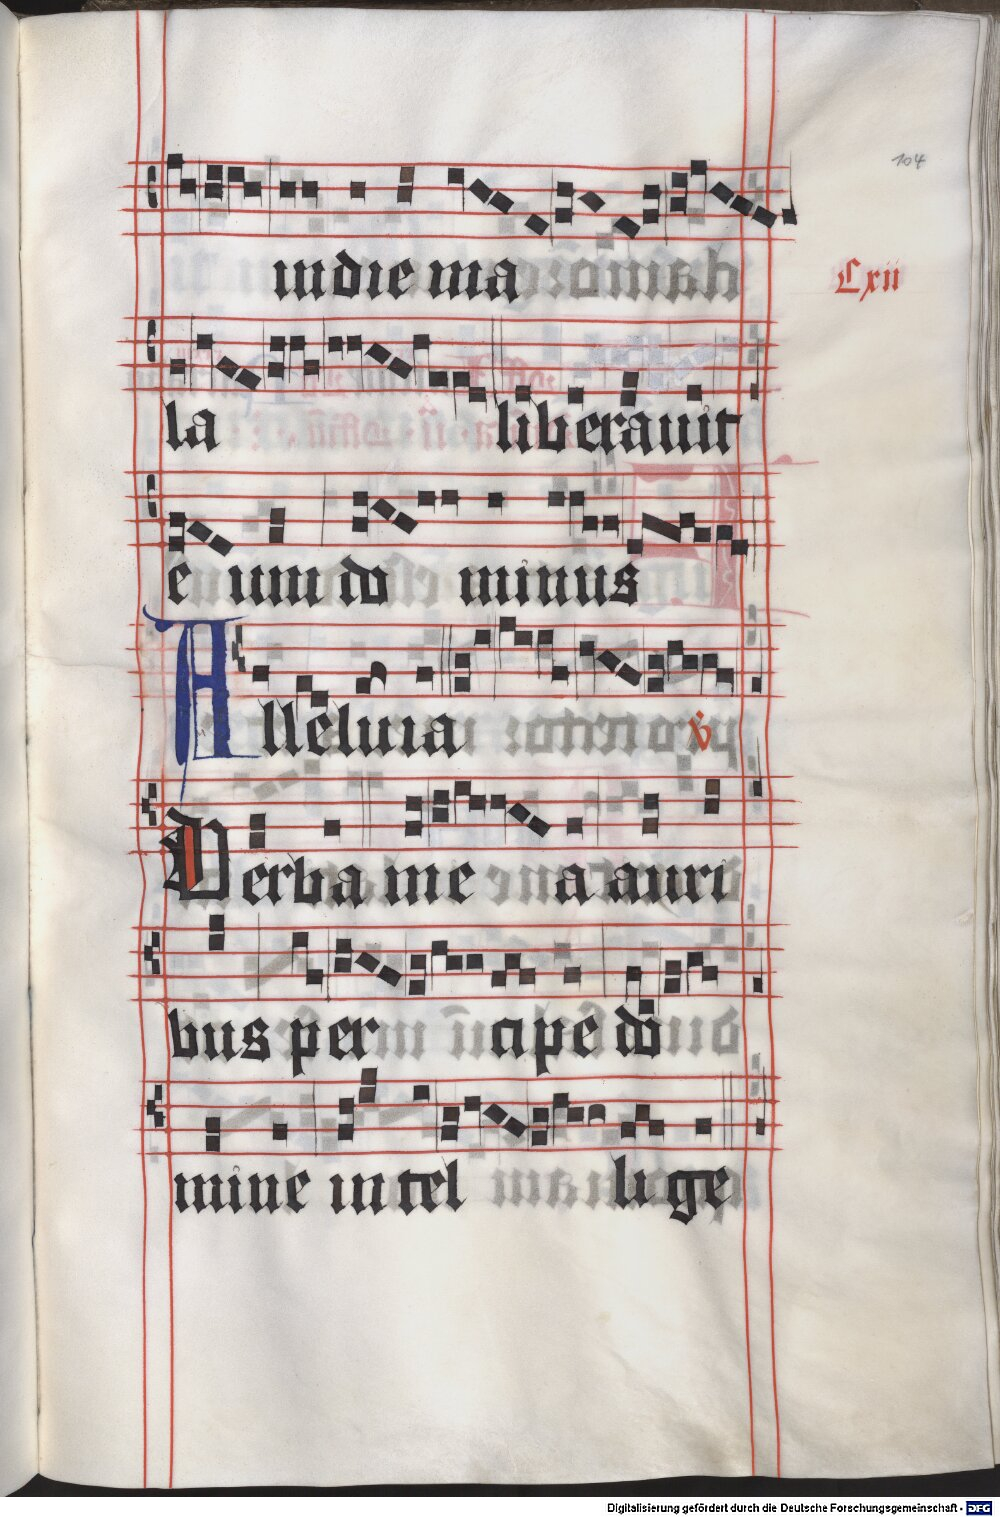 104
in die ma
Cxii
la liberauit
eum do minus
Alleluia v̇
Verba me a auri
bus per cipe do
mine in tel li ge
Digitalisierung gefördert durch die Deutsche Forschungsgemeinschaft - DFG